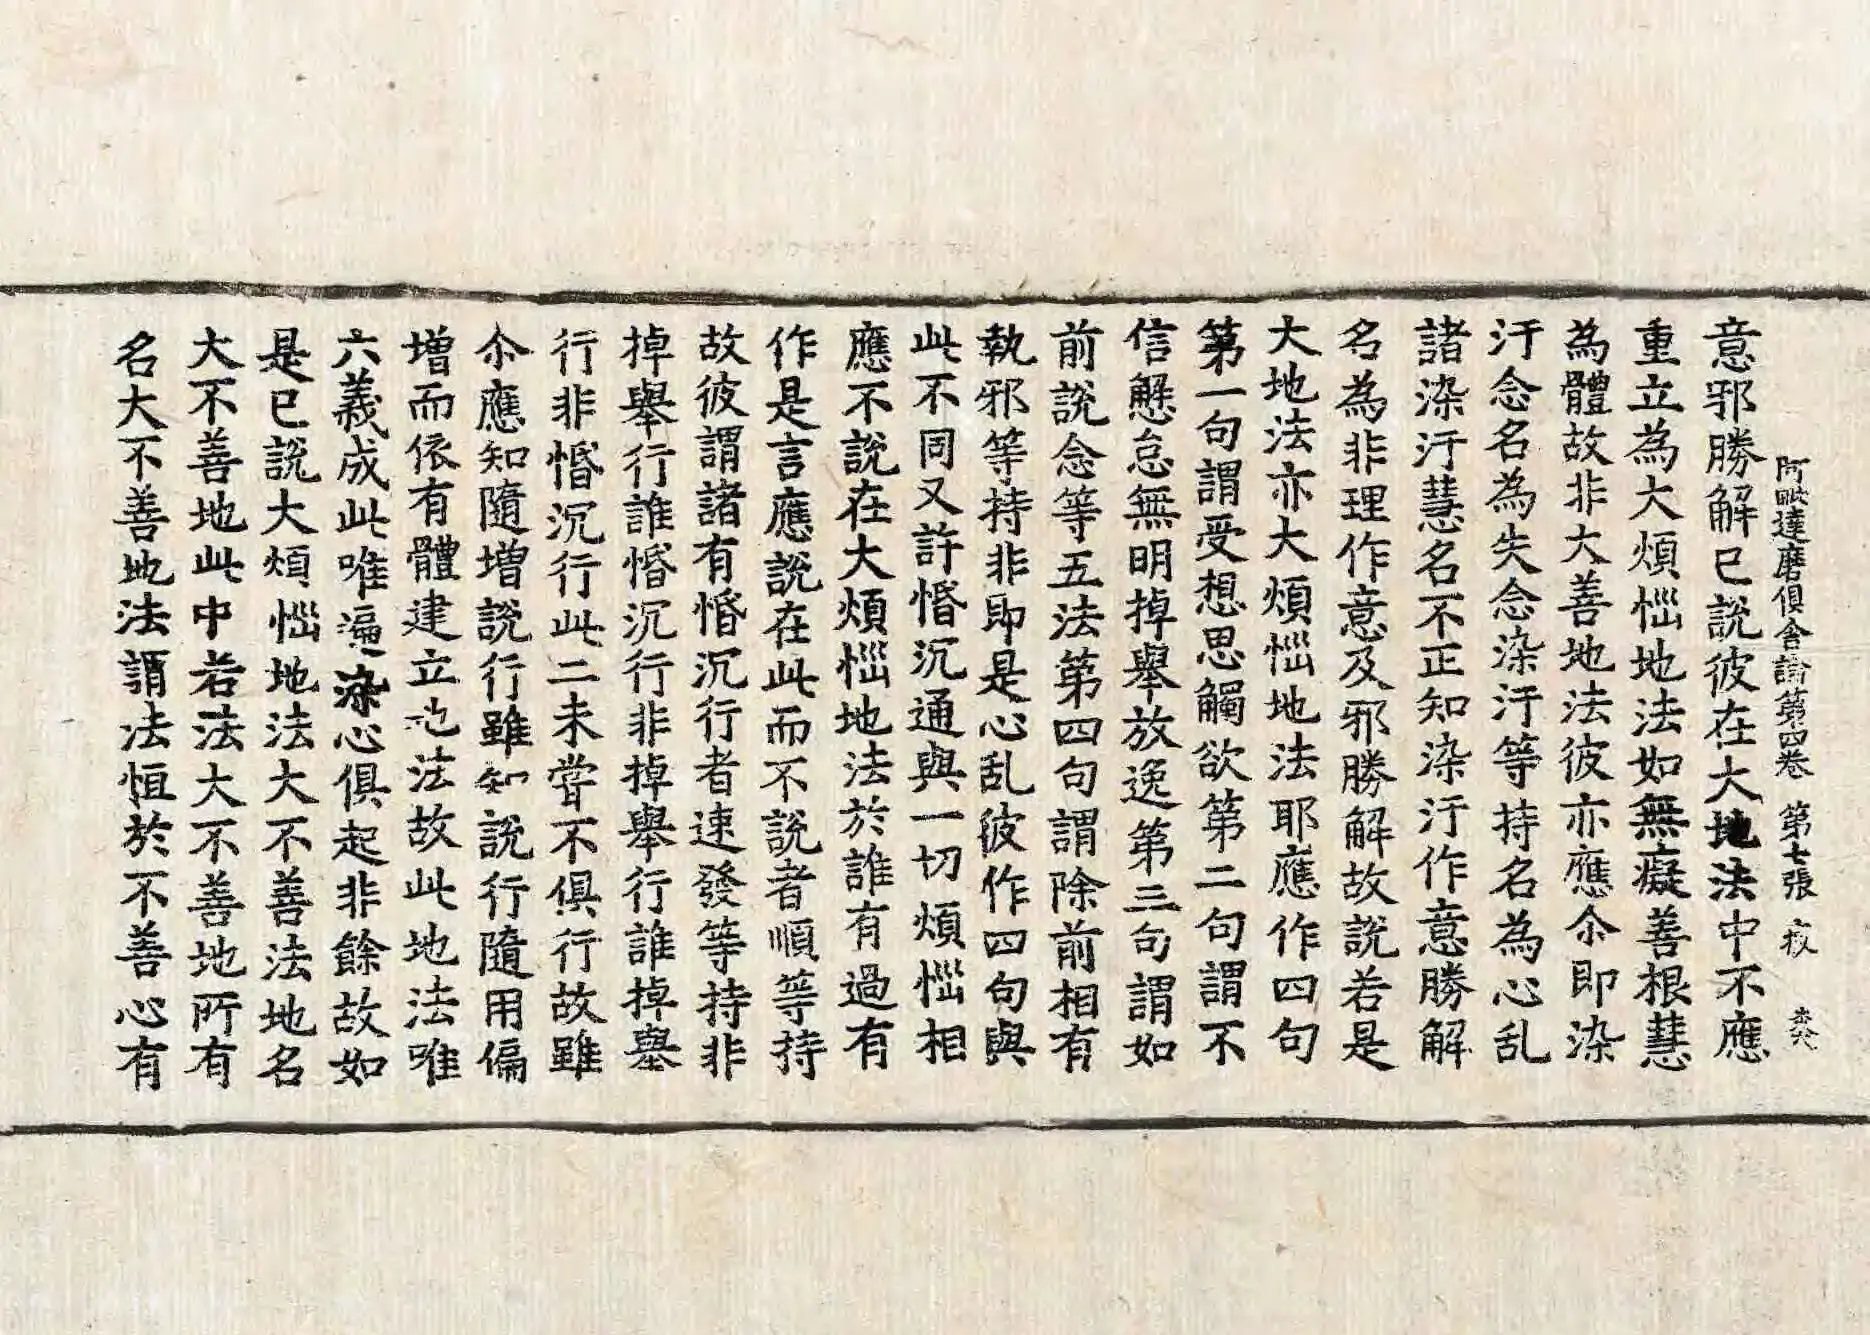 阿毗達磨俱舍論第四卷 第七張 㝛
意邪勝解已說彼在大地法中不應
重立為大煩惱地法如無癡善根慧
為體故非大善地法彼亦應尒即染
汙念名為失念染汙等持名為心乱
諸染汙慧名不正知染汙作意勝解
名為非理作意及邪勝解故說若是
大地法亦大煩惱地法耶應作四句
第一句謂受想思觸欲第二句謂不
信懈怠無明掉舉放逸第三句謂如
前說念等五法第四句謂除前相有
執邪等持非即是心乱彼作四句與
此不同又許惛沉通與一切煩惱相
應不說在大煩惱地法於誰有過有
作是言應說在此而不說者順等持
故彼謂諸有惛沉行者速發等持非
掉舉行誰惛沉行非掉舉行誰掉舉
行非惛沉行此二未甞不俱行故雖
尒應知隨增說行雖知說行隨用偏
增而依有體建立地法故此地法唯
六義成此唯遍染心俱起非餘故如
是已說大煩惱地法大不善法地名
大不善地此中若法大不善地所有
名大不善地法謂法恒於不善心有